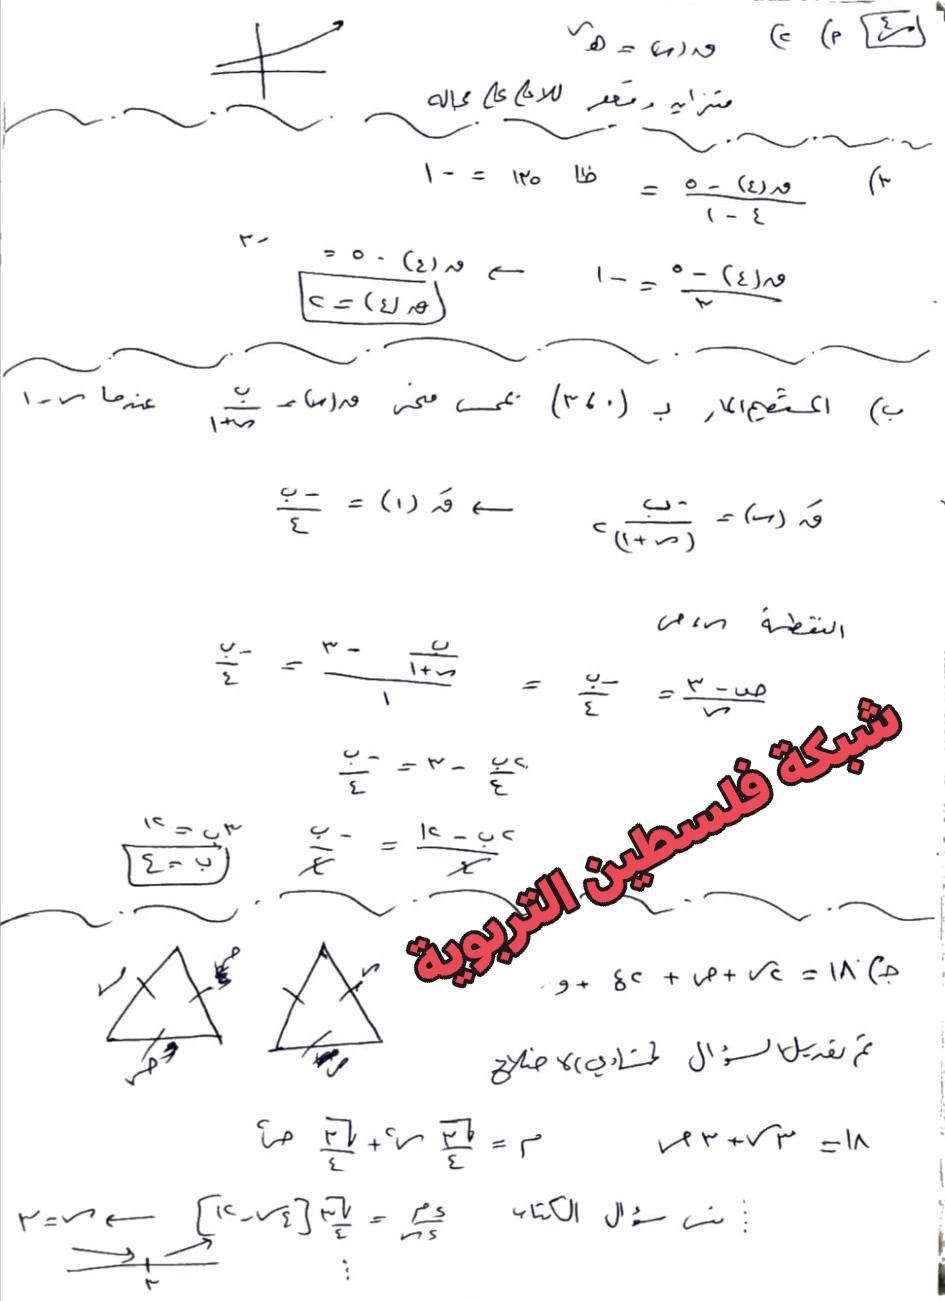 س٤ أ) ٢) ق(س) = هـ^س
متزايد ومقعر للأعلى على مجاله
٣) (ق(٤) - ٥)/(٤ - ١) = ظا ١٣٥ = -١
(ق(٤) - ٥)/٣ = -١ ← ق(٤) - ٥ = -٣
ق(٤) = ٢
ب) المستقيم المار بـ (٠، ٣) يمس منحنى ق(س) = ب/(س+١) عندما س = ١
قَ(س) = -ب/(س+١)^٢ ← قَ(١) = -ب/٤
النقطة س، ص
(ص - ٣)/س = -ب/٤ = (ب/(س+١) - ٣)/١ = -ب/٤
٢ب/٤ - ٣ = -ب/٤
(٢ب - ١٢)/٤ = -ب/٤
٣ب = ١٢
ب = ٤
س
ص
ص
س
س
جـ) ١٨ = ٢س + ص + ٢ع + و
تم تعديل السؤال لمتساوي الأضلاع
١٨ = ٣س + ٣ص
م = √٣/٤ س^٢ + √٣/٤ ص^٢
⋮ نفس سؤال الكتاب
دم/دس = √٣/٤ [٤س - ١٢] ← س = ٣
٣
⋮
شبكة فلسطين التربوية